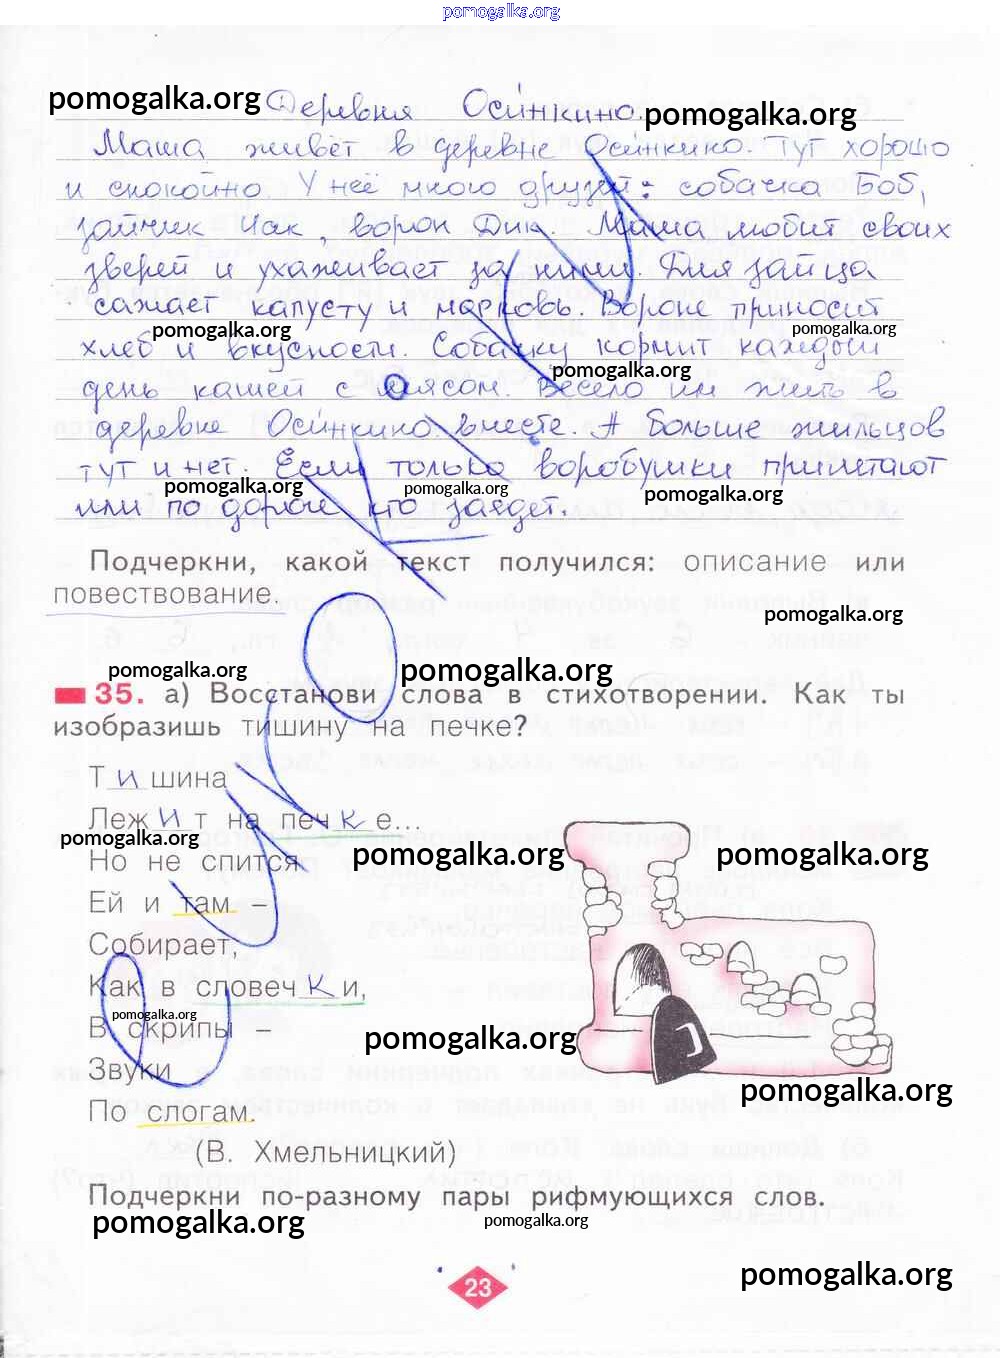 pomogalka.org
pomogalka.org Деревня Осинкино. pomogalka.org
Маша живёт в деревне Осинкино. Тут хорошо
и спокойно. У неё много друзей: собачка Боб,
зайчик Чак, ворон Дик. Маша любит своих
зверей и ухаживает за ними. Для зайца
сажает капусту и морковь. Вороне приносит
pomogalka.org pomogalka.org
хлеб и вкусности. Собачку кормит каждый
pomogalka.org
день кашей с мясом. Весело им жить в
деревне Осинкино вместе. А больше жильцов
тут и нет. Если только воробушки прилетают
pomogalka.org pomogalka.org pomogalka.org
или по дороге кто заедет.
Подчеркни, какой текст получился: описание или
повествование.
pomogalka.org
pomogalka.org pomogalka.org
35. а) Восстанови слова в стихотворении. Как ты
изобразишь тишину на печке?
Тишина
Лежит на печке...
pomogalka.org pomogalka.org pomogalka.org
Но не спится
Ей и там –
Собирает,
Как в словечки,
pomogalka.org
В скрипы –
pomogalka.org
Звуки
pomogalka.org
По слогам.
(В. Хмельницкий)
Подчеркни по-разному пары рифмующихся слов.
pomogalka.org pomogalka.org
pomogalka.org
23